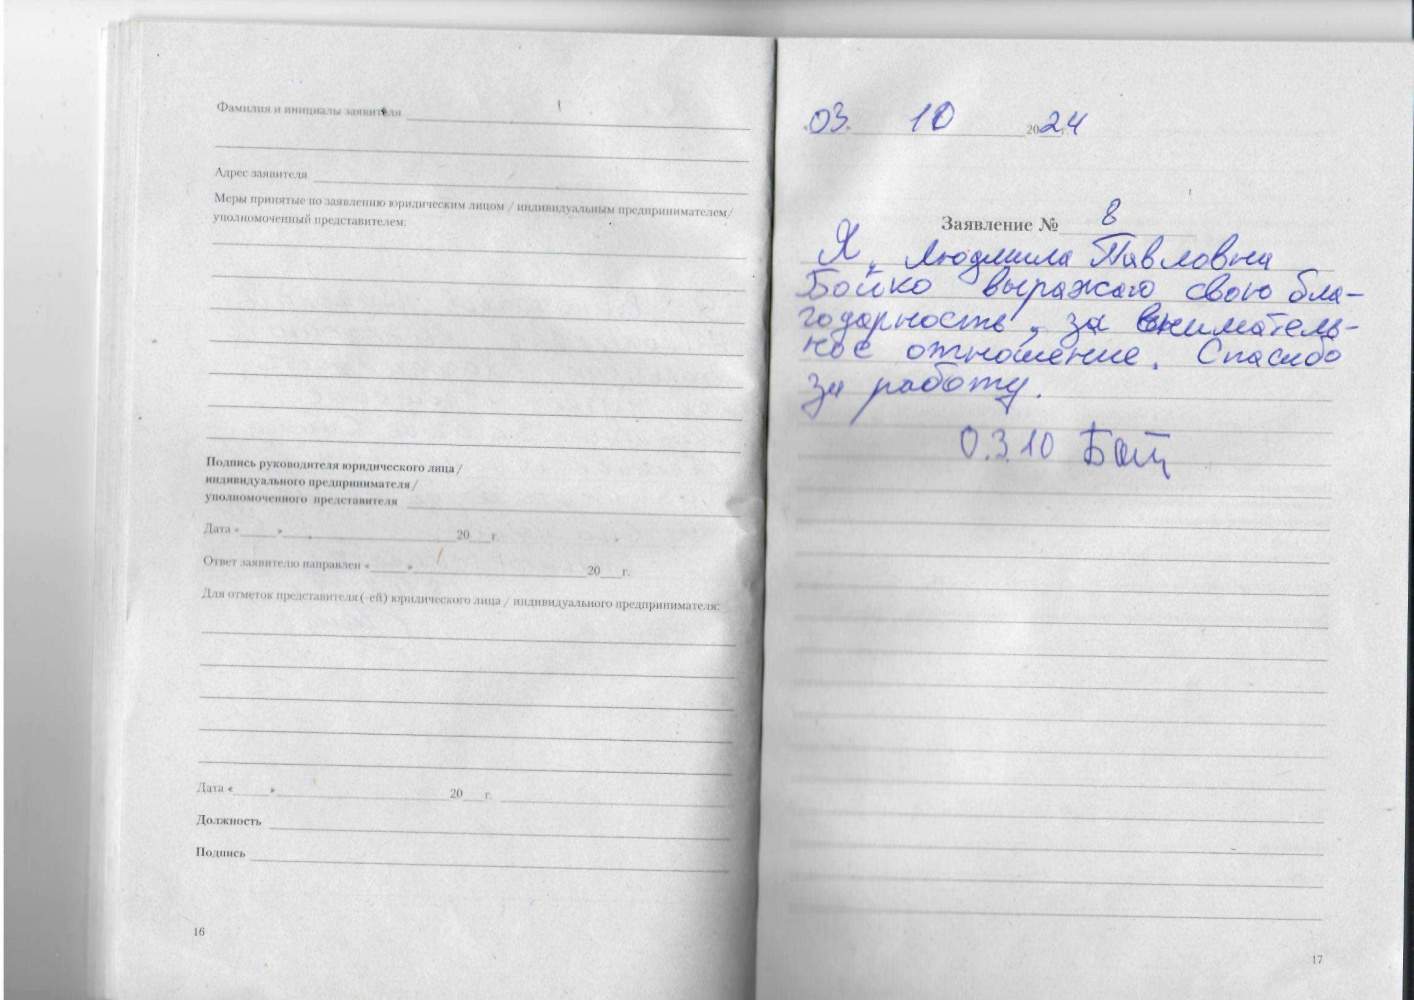 Фамилия и инициалы заявителя
Адрес заявителя
Меры принятые по заявлению юридическим лицом / индивидуальным предпринимателем/
уполномоченный представителем:
Подпись руководителя юридического лица /
индивидуального предпринимателя /
уполномоченного представителя
Дата «______»____________20___г.
Ответ заявителю направлен «______»____________20___г.
Для отметок представителя (-ей) юридического лица / индивидуального предпринимателя:
Дата «______»____________20___г.
Должность
Подпись
16
03. 10 2024
Заявление № 8
Я, Людмила Павловна
Бойко выражаю свою бла-
годарность, за вниматель-
ное отношение. Спасибо
за работу.
0.3.10
17